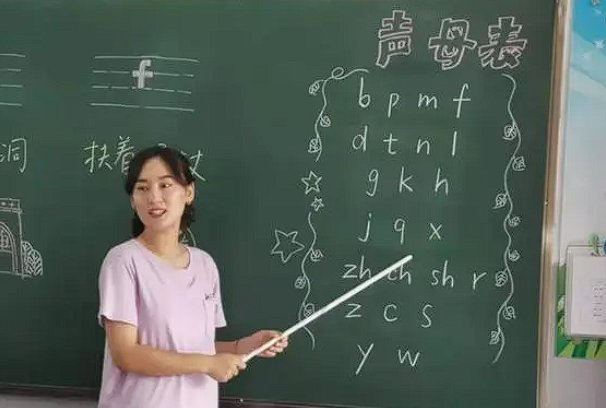 声母表
f
b p m f
d t n l
洞
扶着
g k h
j q x
zh ch sh r
z c s
y w